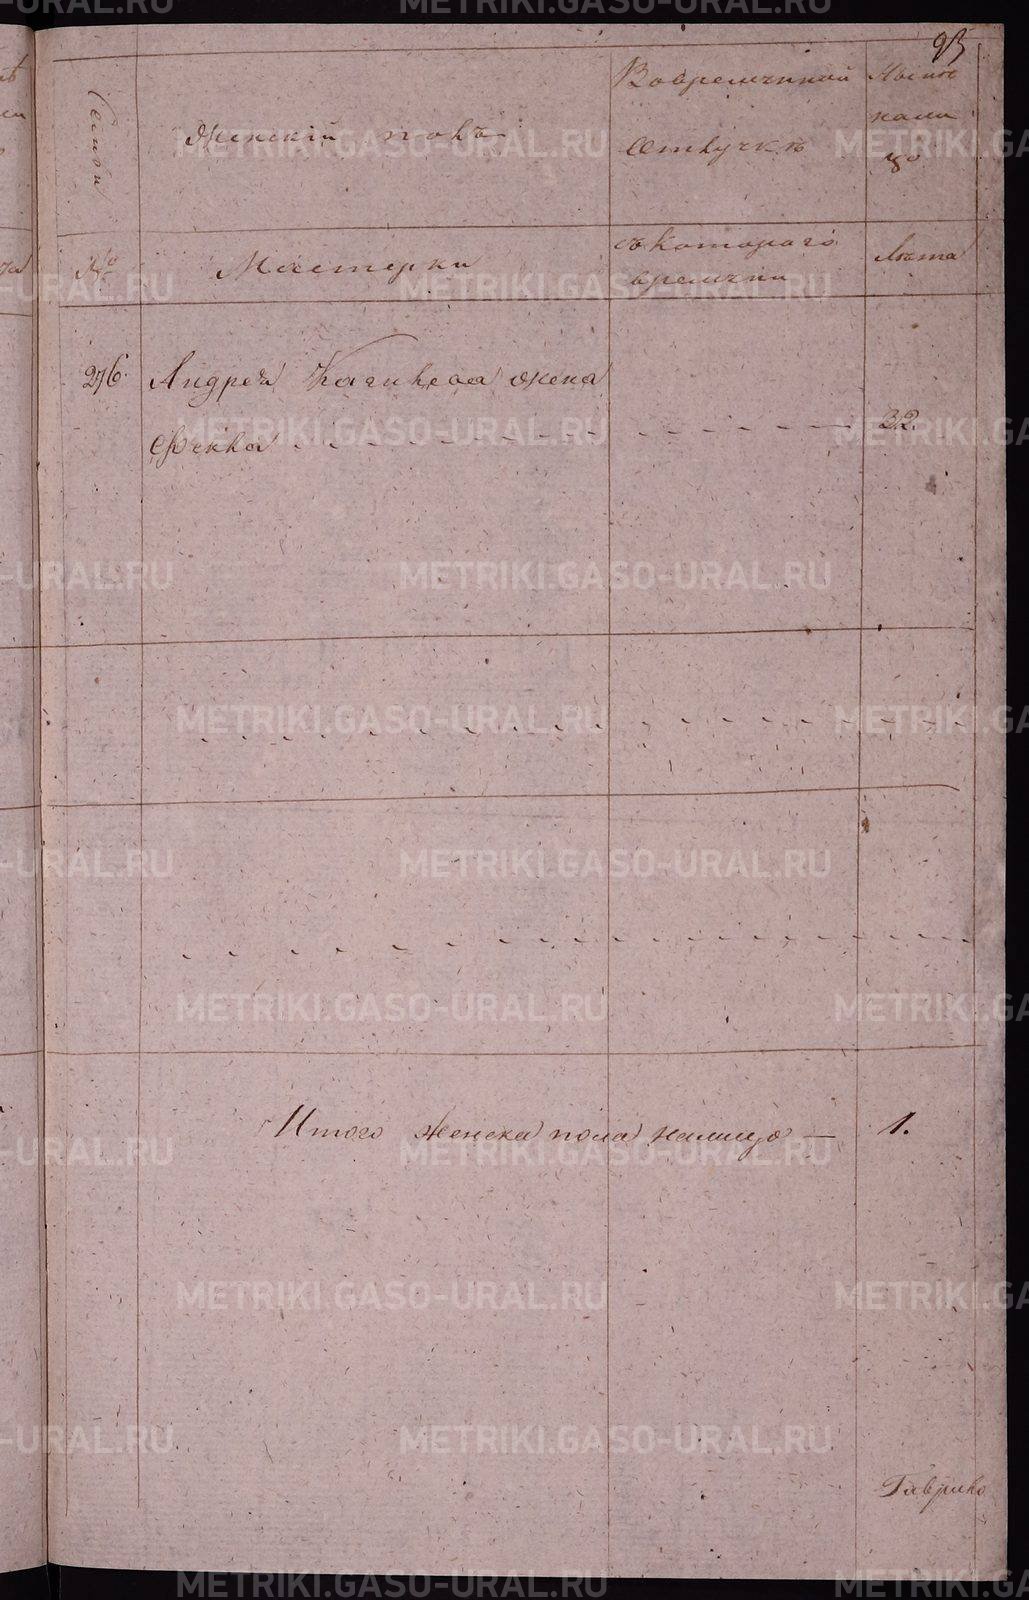 93
Семьи
Женский полъ
Во временной
отлучкѣ
Нынѣ
нали
цо
№
Мастерки
съ котораго
времѣни
Лѣта
276.
Андрея жена
Фекла
32.
Итого женска пола налицо — 1.
METRIKI.GASO-URAL.RU